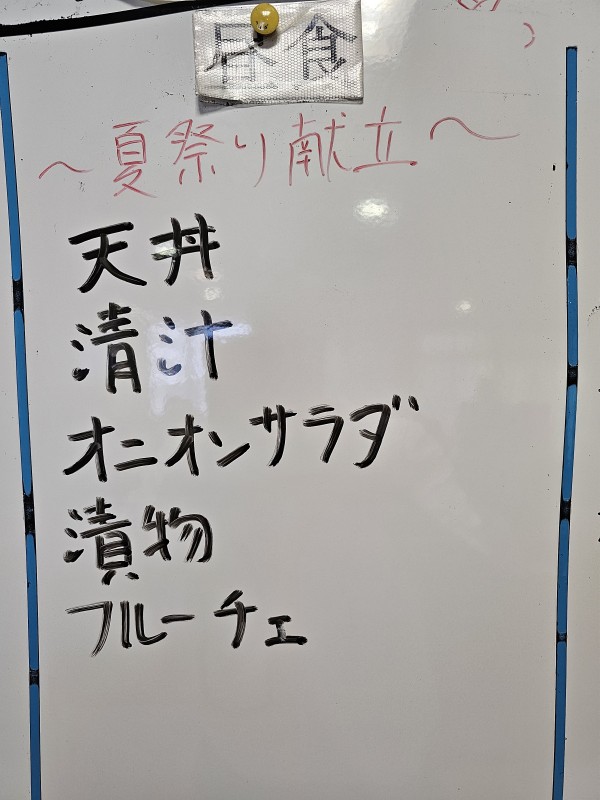 昼食
～夏祭り献立～
天丼
清汁
オニオンサラダ
漬物
フルーチェ